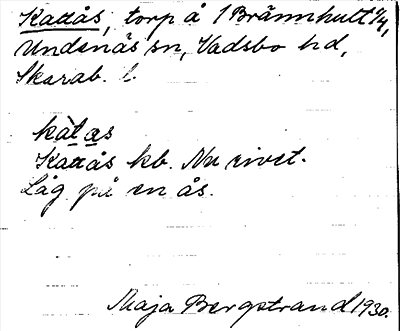 Kattås, torp å 1 Brännhult 4/1,
Undenäs sn, Vadsbo hd,
Skarab. l.
kàtas
Kattås kb. Nu rivet.
Låg på en ås.
Maja Bergstrand 1930.